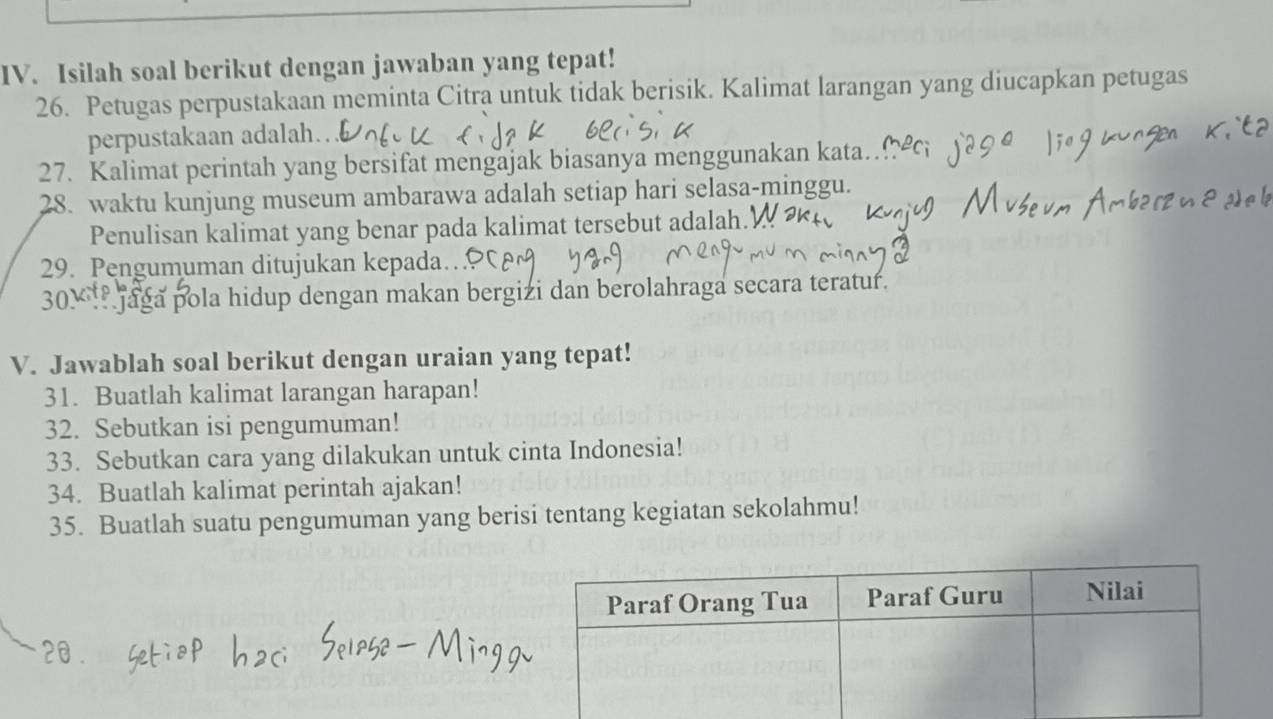 IV. Isilah soal berikut dengan jawaban yang tepat!
26. Petugas perpustakaan meminta Citra untuk tidak berisik. Kalimat larangan yang diucapkan petugas
perpustakaan adalah... Untuk tidak berisik
27. Kalimat perintah yang bersifat mengajak biasanya menggunakan kata.... mari jaga lingkungan kita
28. waktu kunjung museum ambarawa adalah setiap hari selasa-minggu.
Penulisan kalimat yang benar pada kalimat tersebut adalah... Waktu kunjug Museum Ambarawa adalah
29. Pengumuman ditujukan kepada.... orang yang mengumumminnya
30. kita harus ...jaga pola hidup dengan makan bergizi dan berolahraga secara teratur.
V. Jawablah soal berikut dengan uraian yang tepat!
31. Buatlah kalimat larangan harapan!
32. Sebutkan isi pengumuman!
33. Sebutkan cara yang dilakukan untuk cinta Indonesia!
34. Buatlah kalimat perintah ajakan!
35. Buatlah suatu pengumuman yang berisi tentang kegiatan sekolahmu!
Paraf Orang Tua Paraf Guru Nilai
28. setiap hari Selasa-Minggu